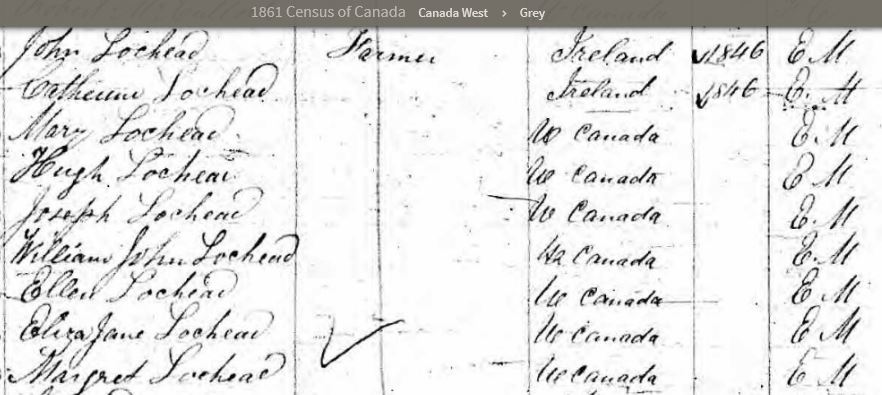 1861 Census of Canada Canada West › Grey
John Lochead Farmer Ireland 1846 E M
Catherine Lochead Ireland 1846 E. M
Mary Lochead W Canada E M
Hugh Lochead W Canada E M
Joseph Lochead W Canada E M
William John Lochead W Canada E M
Ellen Lochead W Canada E M
Eliza Jane Lochead W Canada E M
Margret Lochead W Canada E M